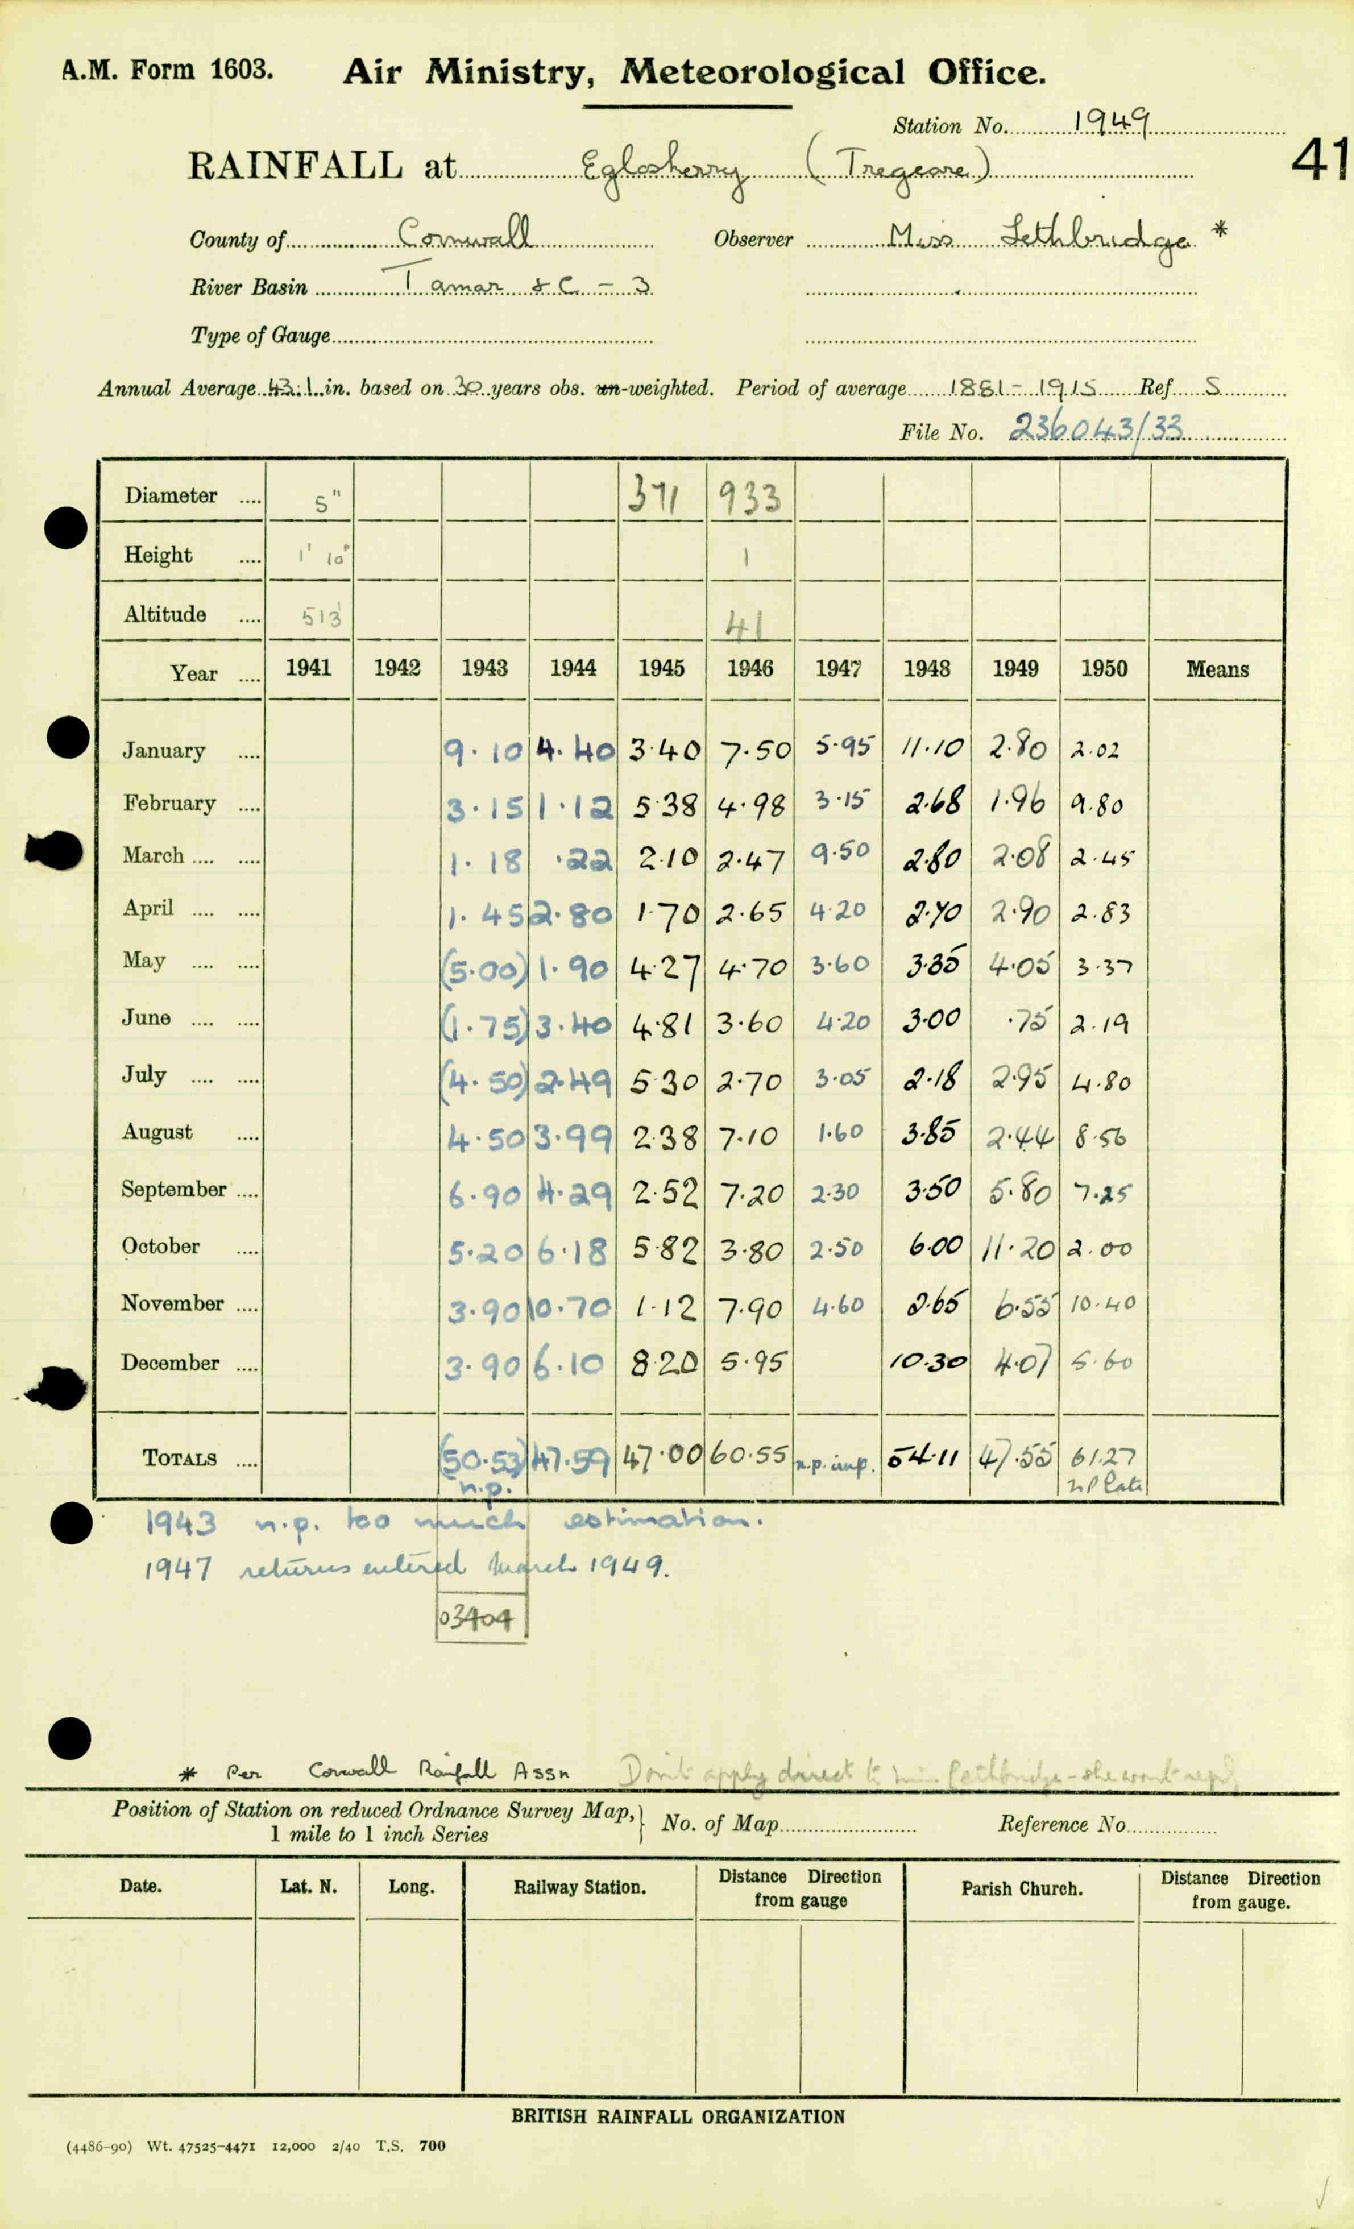 A.M. Form 1603. Air Ministry, Meteorological Office.
Station No. 1949
41
RAINFALL at Egloskerry (Tregeare)
County of Cornwall Observer Miss Lethbridge *
River Basin Tamar &c - 3
Type of Gauge
Annual Average 43.1 in. based on 30 years obs. un-weighted. Period of average 1881-1915 Ref S
File No. 236043/33
Diameter .... 5" 371 933
Height .... 1' 10" 1
Altitude .... 513' 41
Year .... 1941 1942 1943 1944 1945 1946 1947 1948 1949 1950 Means
January .... 9.10 4.40 3.40 7.50 5.95 11.10 2.80 2.02
February .... 3.15 1.12 5.38 4.98 3.15 2.68 1.96 9.80
March .... .... 1.18 .22 2.10 2.47 9.50 2.80 2.08 2.45
April .... .... 1.45 2.80 1.70 2.65 4.20 2.70 2.90 2.83
May .... .... (5.00) 1.90 4.27 4.70 3.60 3.35 4.05 3.37
June .... .... (1.75) 3.40 4.81 3.60 4.20 3.00 .75 2.19
July .... .... (4.50) 2.49 5.30 2.70 3.05 2.18 2.95 4.80
August .... 4.50 3.99 2.38 7.10 1.60 3.85 2.44 8.56
September .... 6.90 4.29 2.52 7.20 2.30 3.50 5.80 7.25
October .... 5.20 6.18 5.82 3.80 2.50 6.00 11.20 2.00
November .... 3.90 10.70 1.12 7.90 4.60 2.65 6.55 10.40
December .... 3.90 6.10 8.20 5.95 10.30 4.07 5.60
TOTALS .... (50.53) 47.59 47.00 60.55 n.p. inp. 54.11 47.55 61.27
n.p. n P late
1943 n.p. too much estimation.
1947 returns entered March 1949.
03404
* Per Cornwall Rainfall Assn Don't apply direct to Miss Lethbridge - she won't reply
Position of Station on reduced Ordnance Survey Map, 1 mile to 1 inch Series } No. of Map Reference No.
Date. Lat. N. Long. Railway Station. Distance from gauge Direction Parish Church. Distance Direction from gauge.
BRITISH RAINFALL ORGANIZATION
(4486-90) Wt. 47525-4471 12,000 2/40 T.S. 700